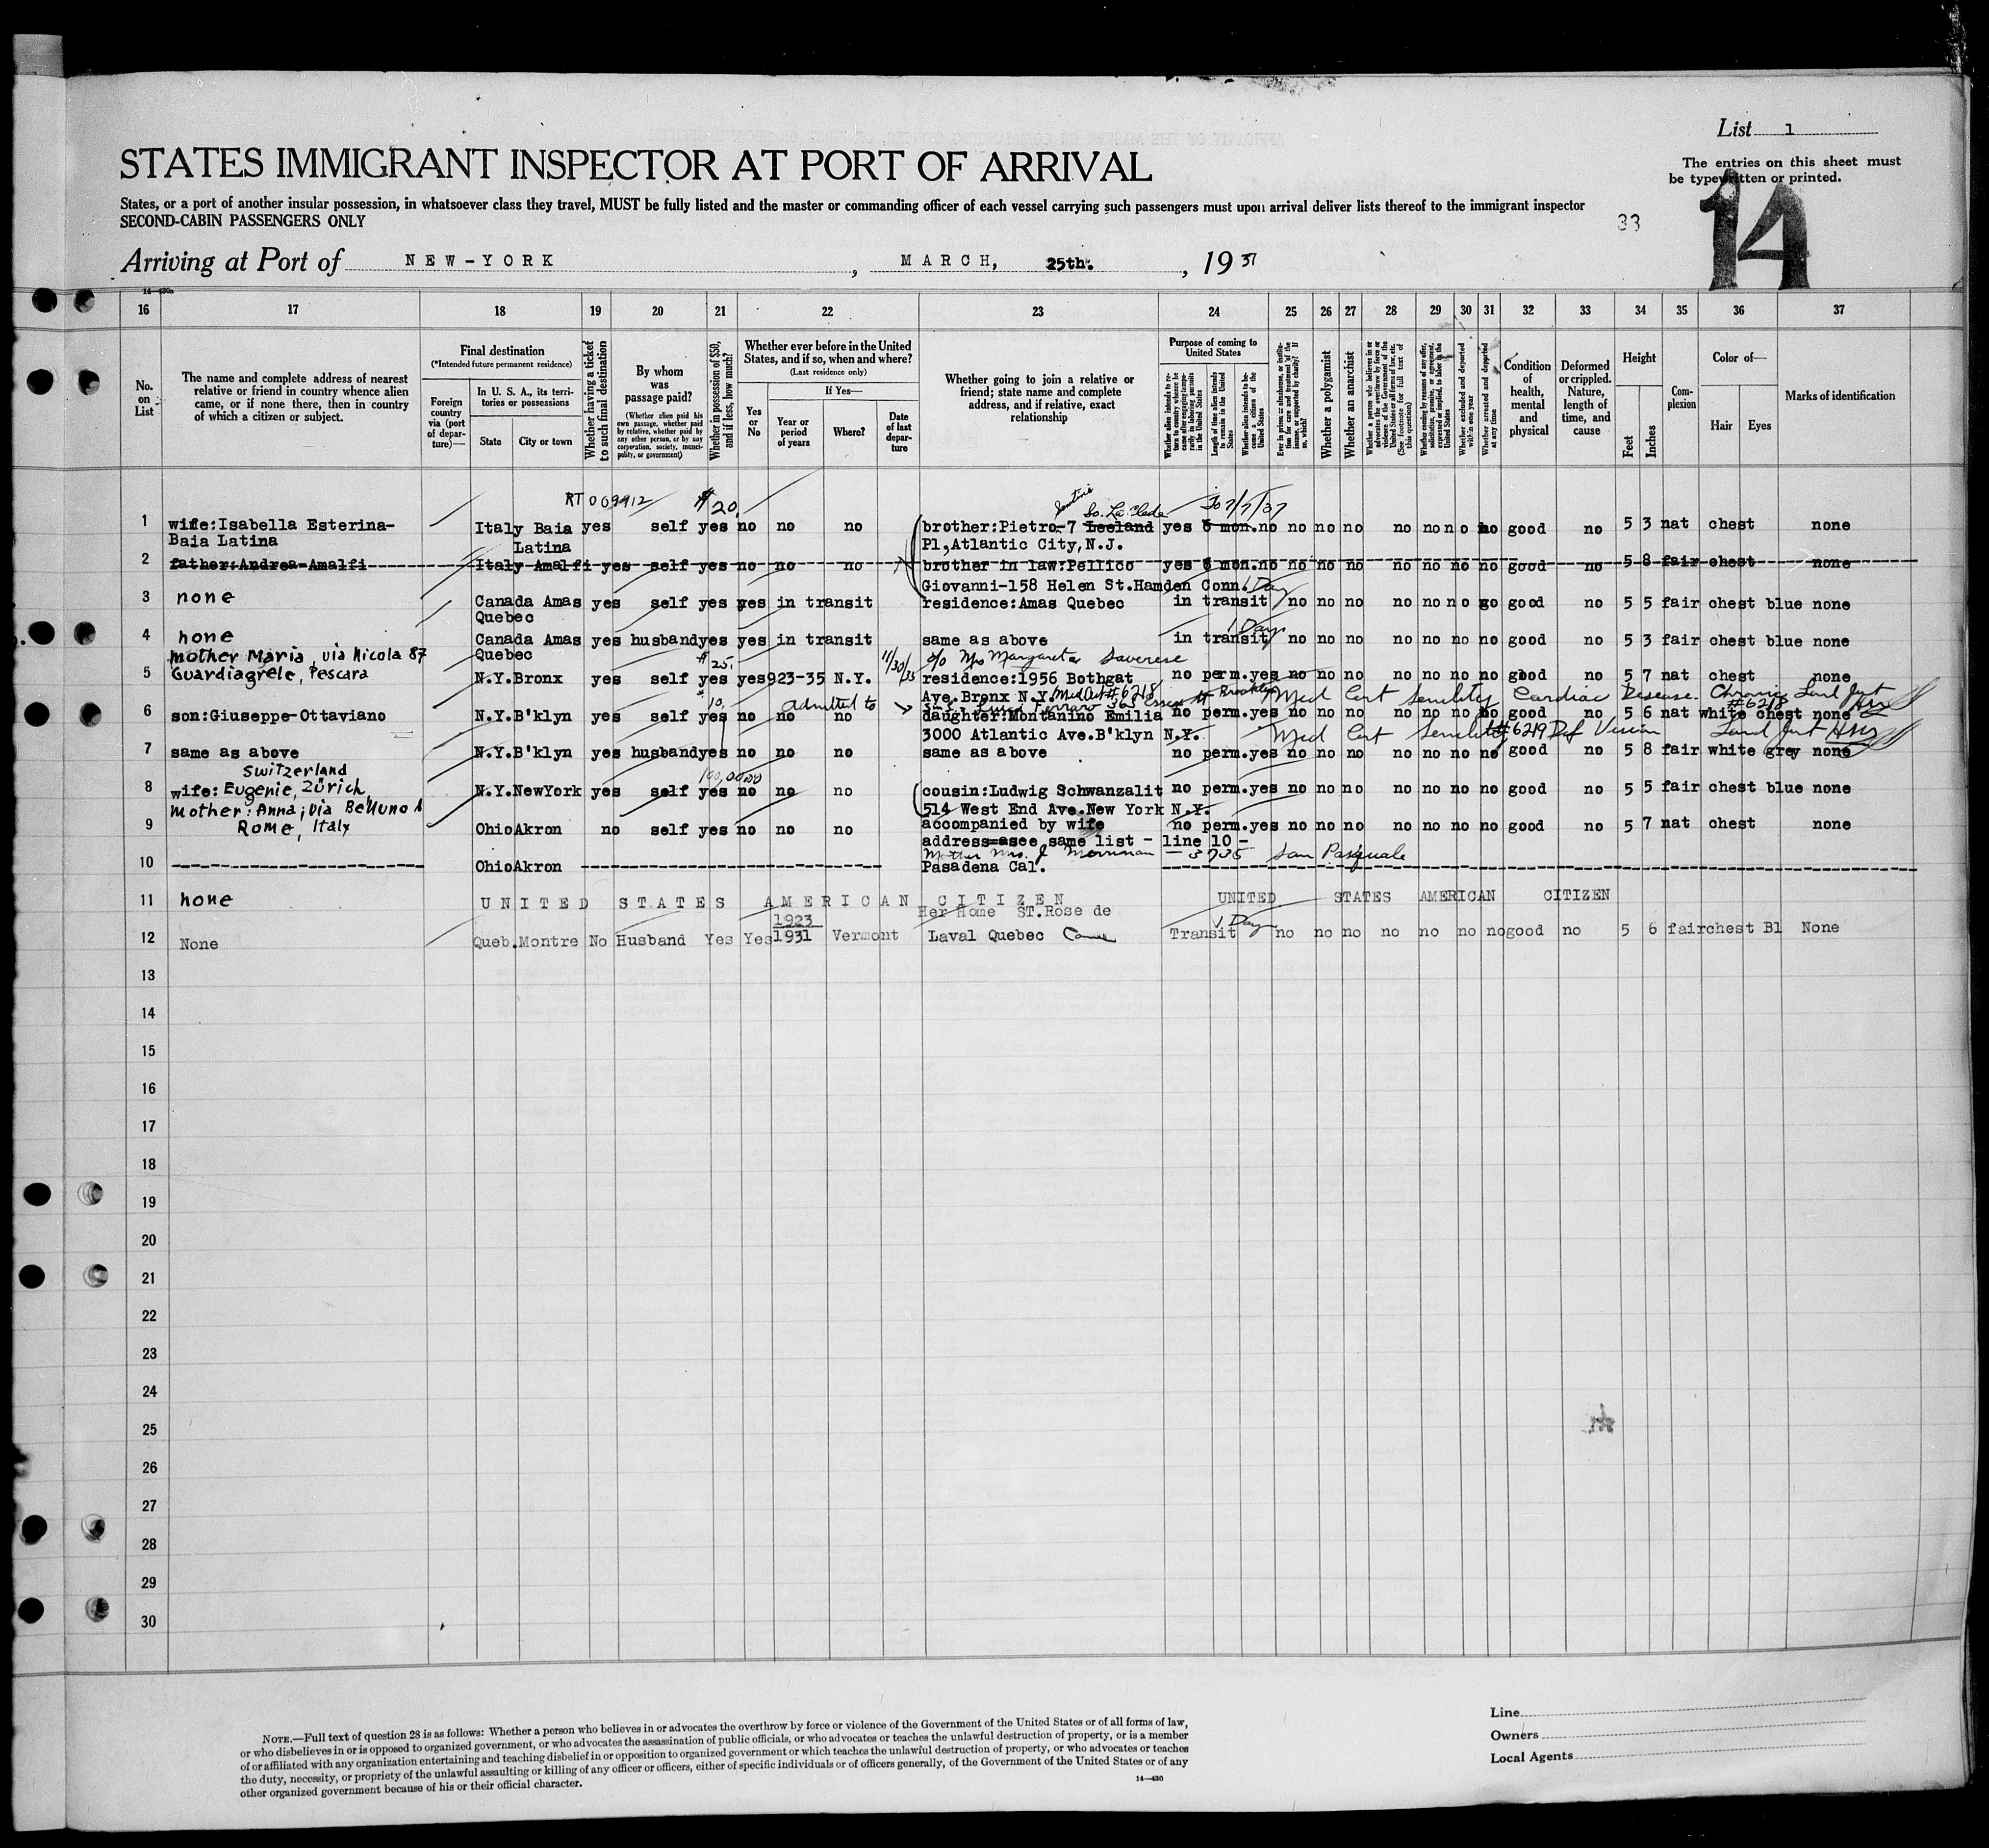 List 1
STATES IMMIGRANT INSPECTOR AT PORT OF ARRIVAL
The entries on this sheet must
be typewritten or printed.
States, or a port of another insular possession, in whatsoever class they travel, MUST be fully listed and the master or commanding officer of each vessel carrying such passengers must upon arrival deliver lists thereof to the immigrant inspector
SECOND-CABIN PASSENGERS ONLY
33
14
Arriving at Port of NEW-YORK, MARCH, 25th., 1937
14—430a
16 17 18 19 20 21 22 23 24 25 26 27 28 29 30 31 32 33 34 35 36 37
No. on List
The name and complete address of nearest relative or friend in country whence alien came, or if none there, then in country of which a citizen or subject.
Final destination
(*Intended future permanent residence)
Foreign country via (port of departure)—
In U. S. A., its territories or possessions
State
City or town
Whether having a ticket to such final destination
By whom was passage paid?
(Whether alien paid his own passage, whether paid by relative, whether paid by any other person, or by any corporation, society, municipality, or government)
Whether in possession of $50, and if less, how much?
Whether ever before in the United States, and if so, when and where?
(Last residence only)
Yes or No
If Yes—
Year or period of years
Where?
Date of last departure
Whether going to join a relative or friend; state name and complete address, and if relative, exact relationship
Purpose of coming to United States
Whether alien intends to return to country whence he came after engaging temporarily in laboring pursuits in the United States
Length of time alien intends to remain in the United States
Whether alien intends to become a citizen of the United States
Ever in prison or almshouse, or institution for care and treatment of the insane, or supported by charity? If so, which?
Whether a polygamist
Whether an anarchist
Whether a person who believes in or advocates the overthrow by force or violence of the Government of the United States or all forms of law, etc. (See footnote for full text of this question)
Whether coming by reasons of any offer, solicitation, promise, or agreement, expressed or implied, to labor in the United States
Whether excluded and deported within one year
Whether arrested and deported at any time
Condition of health, mental and physical
Deformed or crippled. Nature, length of time, and cause
Height
Feet
Inches
Complexion
Color of—
Hair
Eyes
Marks of identification
RT 009912 $20. So. La Clede To 7/7/37
1 wife:Isabella Esterina- Italy Baia yes self yes no no no brother:Pietro-7 Leeland yes 6 mon.no no no no no no no no good no 5 3 nat chest none
Baia Latina Latina Pl,Atlantic City,N.J.
2 father:Andrea-Amalfi Italy Amalfi yes self yes no no no brother in law:Pellico yes 6 mon.no no no no no no no no good no 5 8 fair chest none
Giovanni-158 Helen St.Hamden Conn. 1 Day
3 none Canada Amas yes self yes yes in transit residence:Amas Quebec in transit no no no no no no no good no 5 5 fair chest blue none
Quebec 1 Day
4 none Canada Amas yes husband yes yes in transit same as above in transit no no no no no no no good no 5 3 fair chest blue none
Mother Maria, via Nicola 87 Quebec $25. 11/30/35 c/o Mrs Margareta Saverese
5 Guardiagrele, Pescara N.Y. Bronx yes self yes yes 923-35 N.Y. residence:1956 Bothgat no perm.yes no no no no no no no good no 5 7 nat chest none
10, admitted to Ave.Bronx N.Y. Med Cert #6218 Brooklyn Med Cert Senility Cardiac Disease. Chronic #6218
6 son:Giuseppe-Ottaviano N.Y. B'klyn yes self yes no no no daughter:Montanino Emilia no perm.yes no no no no no no no good no 5 6 nat white chest none
3000 Atlantic Ave.B'klyn N.Y. Med Cert Senility #6219 Def Vision
7 same as above N.Y. B'klyn yes husband yes no no no same as above no perm.yes no no no no no no no good no 5 8 fair white grey none
Switzerland 100,000
8 wife: Eugenie, Zürich, N.Y. NewYork yes self yes no no no cousin:Ludwig Schwanzalit no perm.yes no no no no no no no good no 5 5 fair chest blue none
mother: Anna; via Belluno 1 514 West End Ave.New York N.Y.
9 Rome, Italy Ohio Akron no self yes no no no accompanied by wife no perm.yes no no no no no no no good no 5 7 nat chest none
address=asee same list - line 10 -
Mother Mrs. J Merriman - 3735 San Pasquale
10 Ohio Akron Pasadena Cal.
11 none UNITED STATES AMERICAN CITIZEN UNITED STATES AMERICAN CITIZEN
1923 Her Home ST.Rose de 1 Day
12 None Queb.Montre No Husband Yes Yes 1931 Vermont Laval Quebec Transit no no no no no no no good no 5 6 fair chest Bl None
13
14
15
16
17
18
19
20
21
22
23
24
25
26
27
28
29
30
NOTE.—Full text of question 28 is as follows: Whether a person who believes in or advocates the overthrow by force or violence of the Government of the United States or of all forms of law,
or who disbelieves in or is opposed to organized government, or who advocates the assassination of public officials, or who advocates or teaches the unlawful destruction of property, or is a member
of or affiliated with any organization entertaining and teaching disbelief in or opposition to organized government or which teaches the unlawful destruction of property, or who advocates or teaches
the duty, necessity, or propriety of the unlawful assaulting or killing of any officer or officers, either of specific individuals or of officers generally, of the Government of the United States or of any
other organized government because of his or their official character.
14—430
Line
Owners
Local Agents